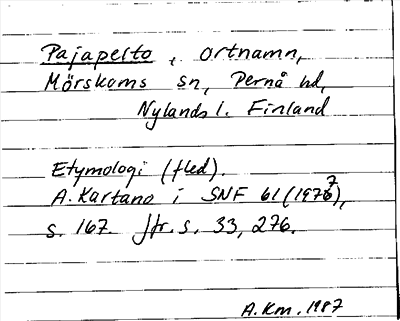 Pajapelto, ortnamn,
Mörskoms sn, Pernå hd,
Nylands l. Finland
Etymologi (fled).
A. Kartano i SNF 61 (1977),
s. 167. Jfr. s. 33, 276.
A.Km. 1987